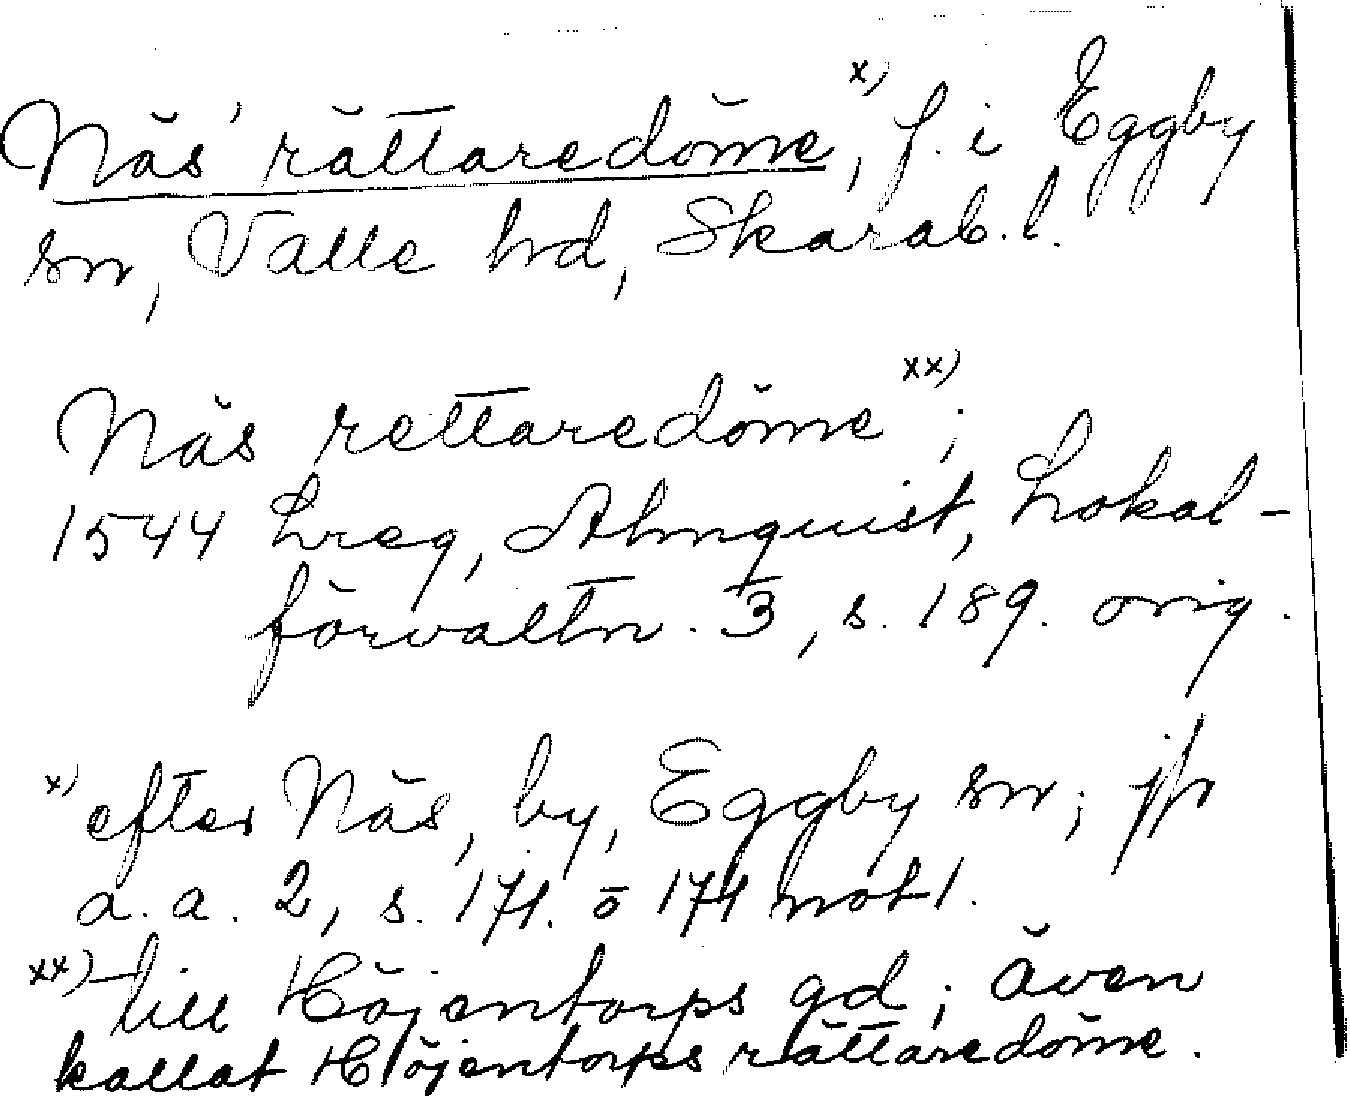 Näs' rättaredöme, x) f. i Eggby
sn, Valle hd, Skarab. l.
Näs rettaredöme xx);
1544 Lreg, Almquist, Lokal-
förvaltn. 3, s. 189. orig.
x) efter Näs, by, Eggby sn; jfr
a. a. 2, s. 171. o 174 not 1.
xx) till Höjentorps gd; även
kallat Höjentorps rättaredöme.